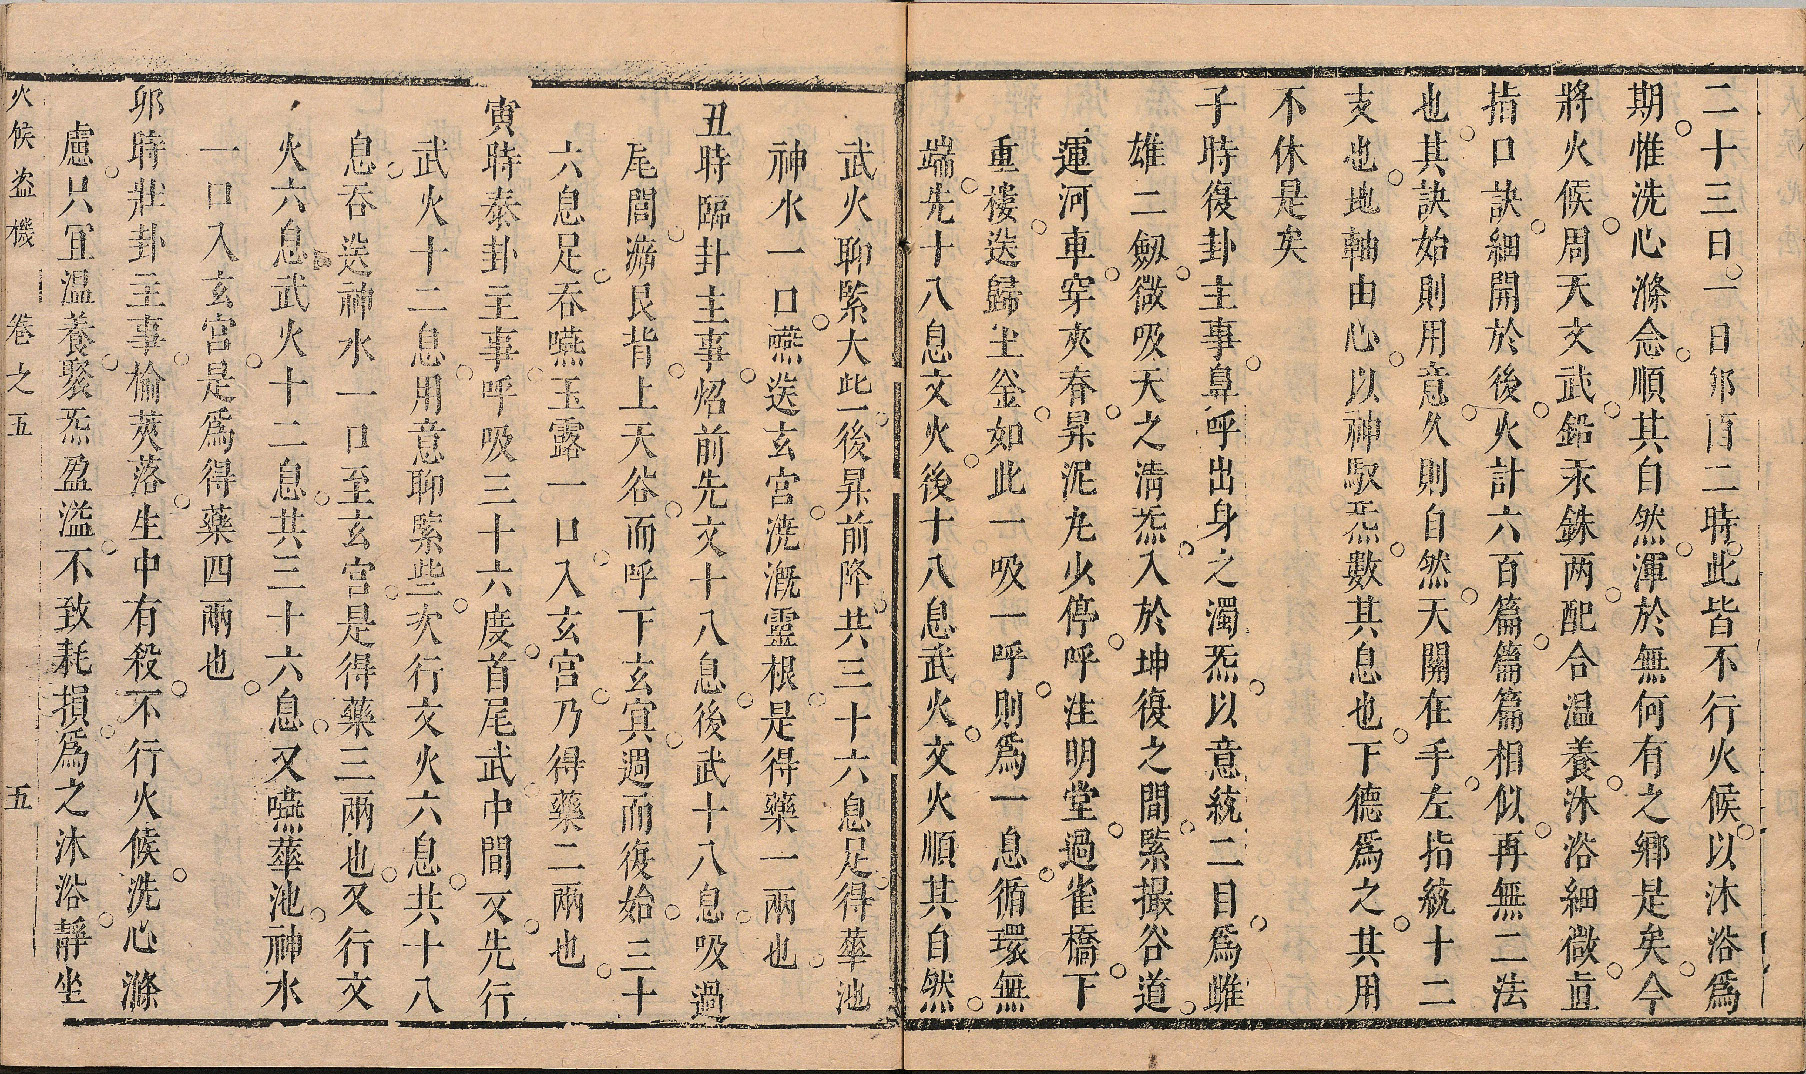 二十三日一日卯酉二時此皆不行火候以沐浴爲
期惟洗心滌念順其自然渾於無何有之鄉是矣今
將火候周天文武鉛汞銖两配合温養沐浴細微直
指口訣細開於後火計六百篇篇篇相似再無二法
也其訣始則用意久則自然天關在手左指統十二
支也地軸由心以神馭炁數其息也下德爲之其用
不休是矣
子時復卦主事鼻呼出身之濁炁以意統二目爲雌
雄二劔微吸天之清炁入於坤復之間緊撮谷道
運河車穿夾脊昇泥丸少停呼注明堂過雀橋下
重樓送歸土釡如此一吸一呼則爲一息循環無
端先十八息文火後十八息武火文火順其自然
武火聊緊大此後昇前降共三十六息足得華池
神水一口嚥送玄宮洗溉靈根是得藥一兩也
丑時臨卦主事炤前先文十八息後武十八息吸過
尾閭泝艮背上天谷而呼下玄㝠週而復始三十
六息足吞嚥玉露一口入玄宮乃得藥二兩也
寅時泰卦主事呼吸三十六度首尾武中間文先行
武火十二息用意聊緊些次行文火六息共十八
息吞送神水一口至玄宮是得藥三兩也又行文
火六息武火十二息共三十六息又嚥華池神水
一口入玄宮是爲得藥四兩也
卯時壯卦主事榆莢落生中有殺不行火候洗心滌
慮只宜温養緊炁盈溢不致耗損爲之沐浴靜坐
火候盗機 卷之五 五